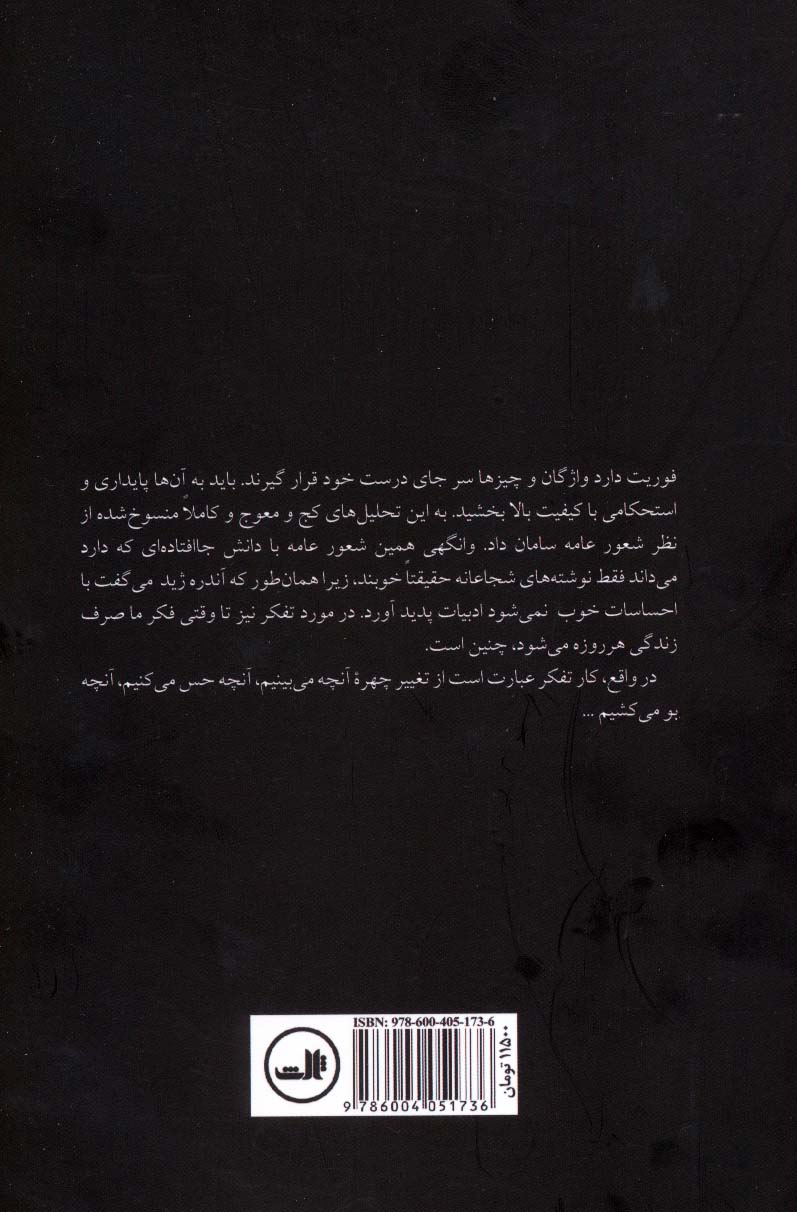 فوریت دارد واژگان و چیزها سر جای درست خود قرار گیرند. باید به آن‌ها پایداری و
استحکامی با کیفیت بالا بخشید. به این تحلیل‌های کج و معوج و کاملاً منسوخ‌شده از
نظر شعور عامه سامان داد. وانگهی همین شعور عامه با دانش جاافتاده‌ای که دارد
می‌داند فقط نوشته‌های شجاعانه حقیقتاً خوبند، زیرا همان‌طور که آندره ژید می‌گفت با
احساسات خوب نمی‌شود ادبیات پدید آورد. در مورد تفکر نیز تا وقتی فکر ما صرف
زندگی هرروزه می‌شود، چنین است.
در واقع، کار تفکر عبارت است از تغییر چهرهٔ آنچه می‌بینیم، آنچه حس می‌کنیم، آنچه
بو می‌کشیم ...
ISBN: 978-600-405-173-6
9 786004 051736
۱۱۵۰۰ تومان
ثالث